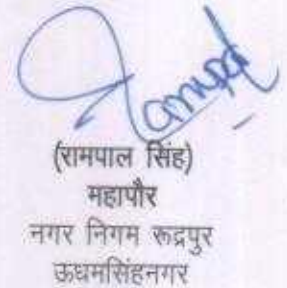 Rampal
(रामपाल सिंह)
महापौर
नगर निगम रूद्रपुर
ऊधमसिंहनगर